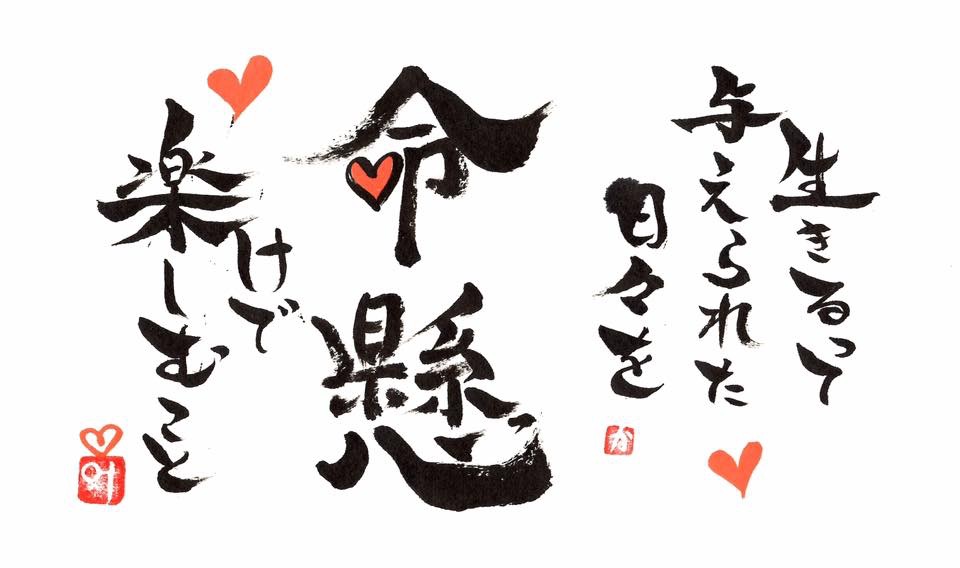 生きるって
与えられた
日々を
命懸
けで
楽しむこと
か
叶